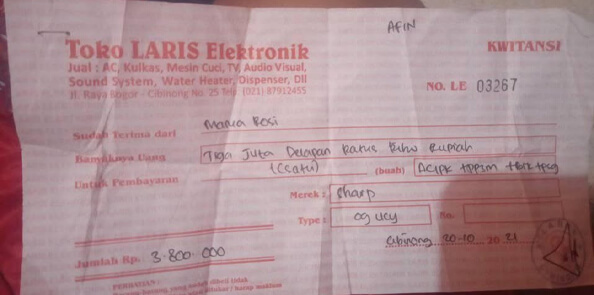 AFIN
Toko LARIS Elektronik
KWITANSI
Jual : AC, Kulkas, Mesin Cuci, TV, Audio Visual,
Sound System, Water Heater, Dispenser, Dll
Jl. Raya Bogor - Cibinong No. 25 Telp. (021) 87912455
NO. LE 03267
Sudah Terima dari Mama Rosi
Banyaknya Uang Tiga Juta Delapan Ratus Ribu Rupiah
Untuk Pembayaran (Csatu) (buah) AC1PK
Merek : Sharp
Type : No.
Cibinong 20-10 20 21
Jumlah Rp. 3.800.000
PERHATIAN :